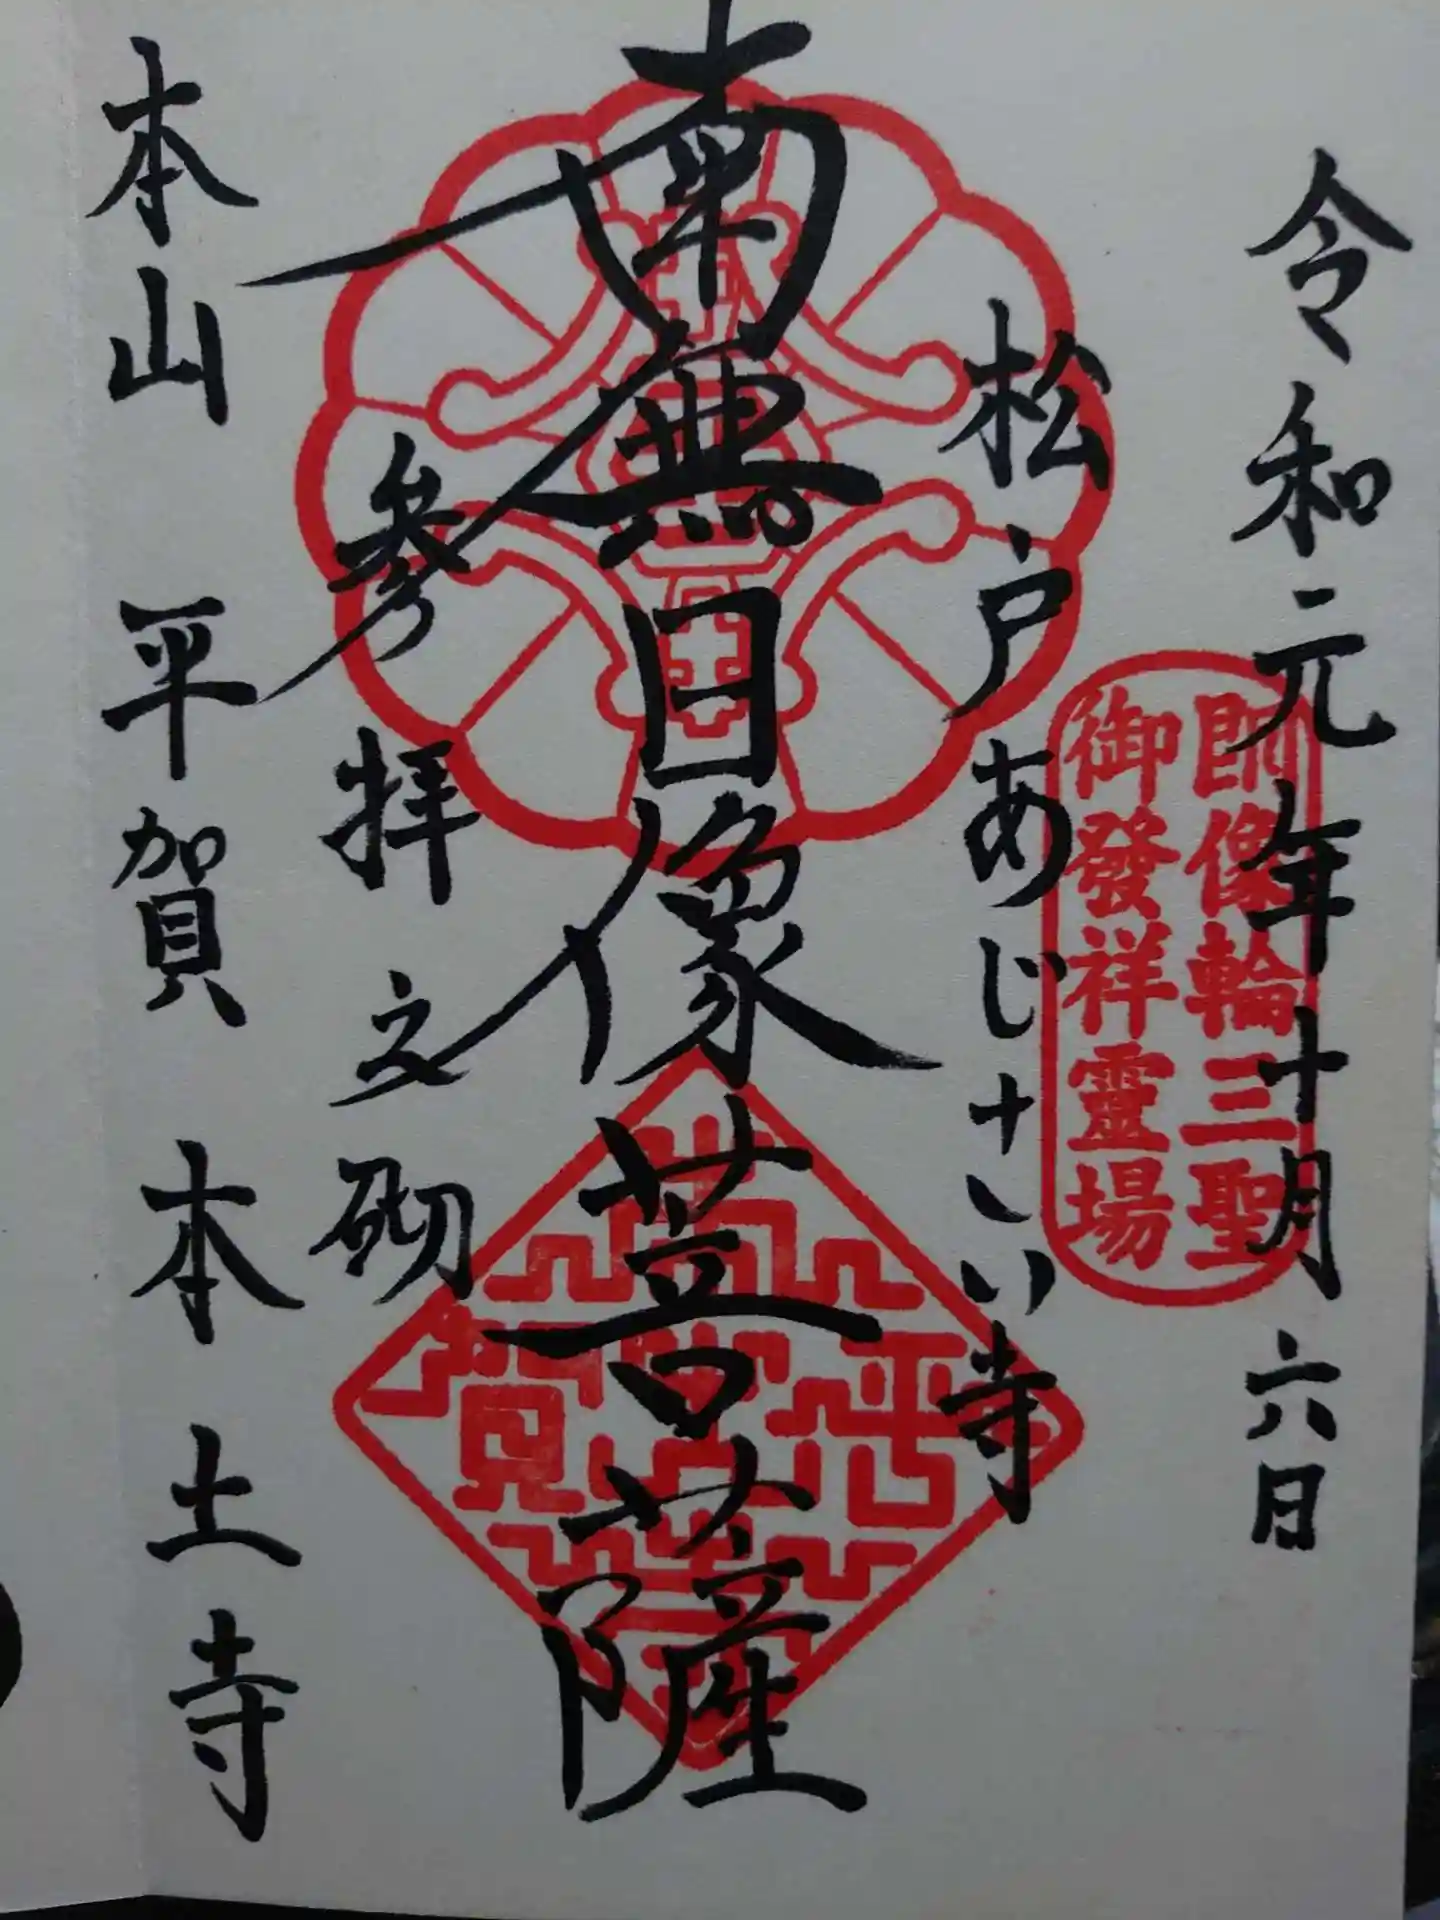 令和元年十月六日
郎像輪三聖
御發祥靈場
松戸あじさい寺
南無日像菩薩
参拝之砌
本山 平賀 本土寺